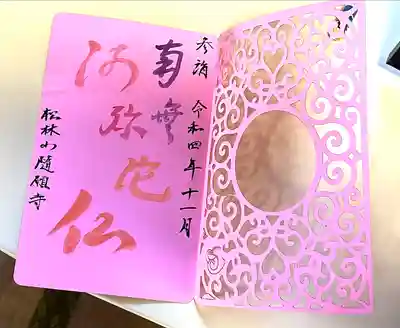 参詣 令和四年十一月
南無
阿弥陀仏
松林山随願寺